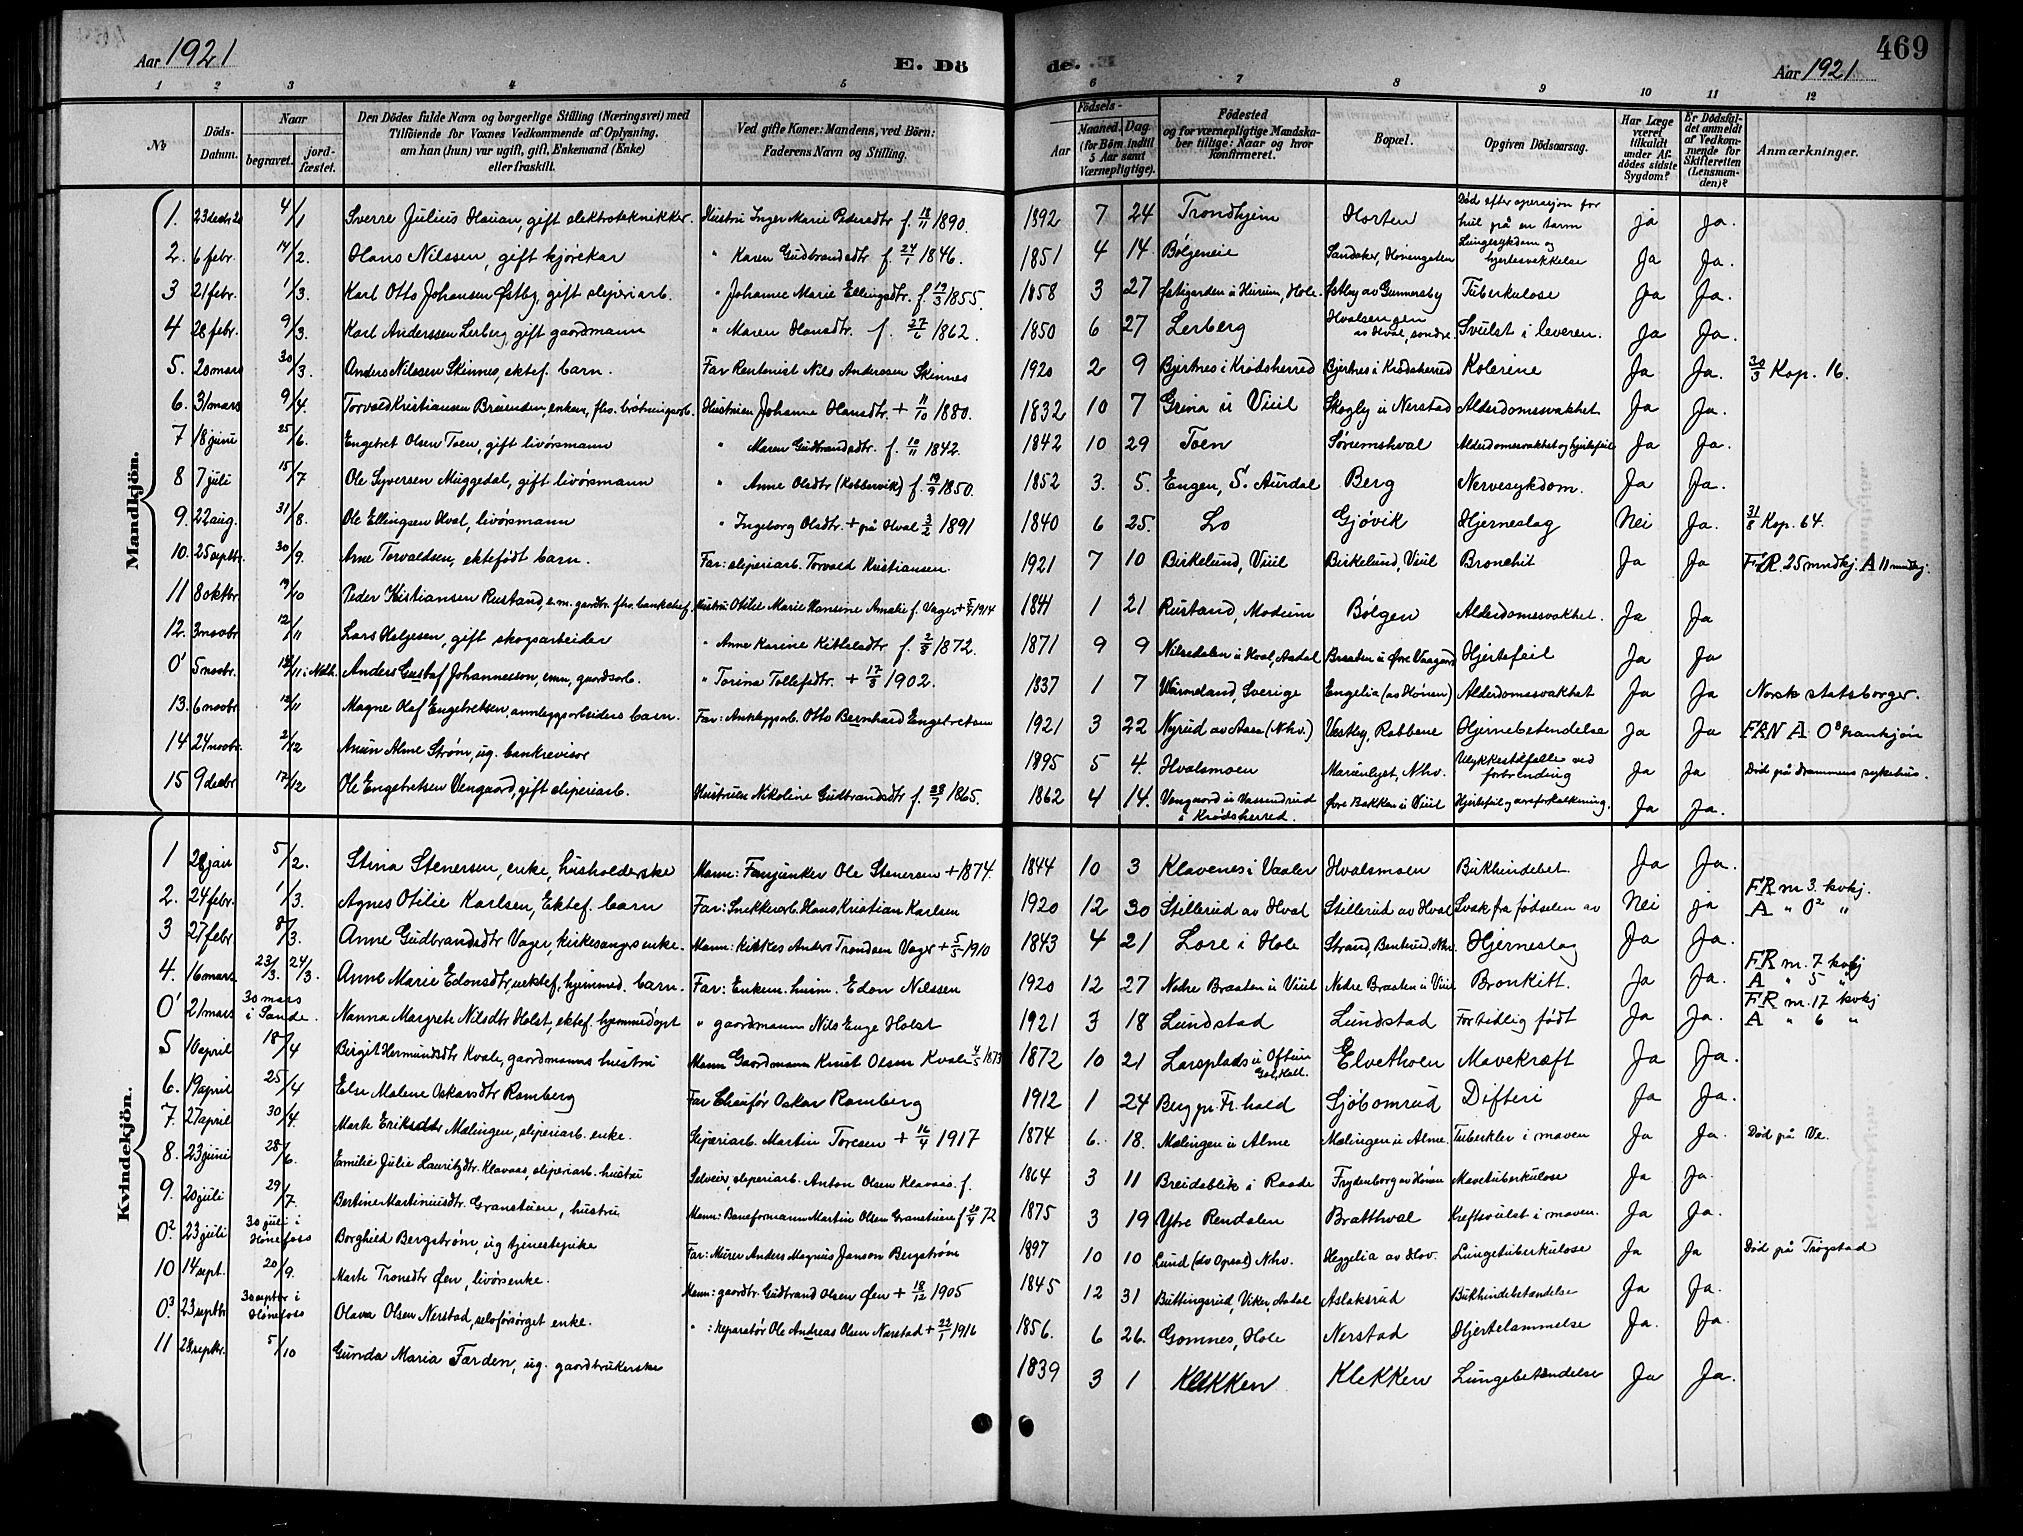 Aar 1921
E. Dö
de.
469
Aar 1921
1 2 3 4 5 6 7 8 9 10 11 12
No
Döds-Datum.
Naar
begravet.
jordfæstet.
Den Dödes fulde Navn og borgerlige Stilling (Næringsvei) med
Tilföiende for Voxnes Vedkommende af Oplysning,
om han (hun) var ugift, gift, Enkemand (Enke)
eller fraskilt.
Ved gifte Koner: Mandens, ved Börn:
Faderens Navn og Stilling.
Födsels-
Aar
Maaned. Dag
(for Börn indtil
5 Aar samt
Værnepligtige).
Födested
og for værnepligtige Mandskaber tillige: Naar og hvor
konfirmeret.
Bopæl.
Opgiven Dödsaarsag.
Har Læge været tilkaldt under Afdödes sidste Sygdom?
Er Dödsfaldet anmeldt af Vedkommende for Skifteretten (Lensmanden)?
Anmærkninger.
Mandkjön.
1. 23 decbr 20 4/1 Sverre Julius Hauan, gift elektrotekniker. Hustru Inger Marie Pedersdtr f. 18/11 1890. 1892 7 24 Trondhjem Horten Död efter operasjon for hul på en tarm ja Ja.
2. 6 febr. 14/2. Hans Nilssen, gift kjørekar " Karen Gudbrandsdtr f. 24/1 1846. 1851 4 14. Bølgeneie Sandaker, Hønengaten Lungesykdom og hjertesvekkelse Ja Ja.
3 21 febr. 1/3. Karl Otto Johansen Østby, gift sliperiarb. " Johanne Marie Ellingsdtr. f. 19/3 1855. 1858 3 27 Østigarden u Hurum, Hole. Østby av Gunnersby Tuberkulose Ja Ja.
4 28 febr. 9/3. Karl Anderssen Lerberg, gift gaardmann " Maren Hansdtr. f. 27/6 1862. 1850 6 27 Lerberg Hvalsengen av Hval, søndre. Svulst i leveren. Ja Ja.
5. 20 mars 30/3. Anders Nilssen Skinnes, ektef. barn. Far Rentenist Nils Anderssen Skinnes 1920 2 9 Bjertnes i Krødsherred Bjertnes i Krødsherred Kolerine Ja Ja. 30/3 Kap. 16.
6. 31 mars 9/4. Torvald Kristiansen Breienden, enkem, fhv. brøtningsarb. Hustruen Johanne Hansdtr. + 11/10 1880. 1832 10 7 Grina u Viul Skogly u Nerstad Alderdomssvakhet Ja Ja.
7 18 juni 25/6. Engebret Olsen Toen, gift livørsmann " Maren Gudbrandsdtr f. 10/11 1842. 1842 10 29 Toen Sørumshval Alderdomssvakhet og hjertefeil Ja Ja.
8 7 juli 15/7 Ole Syversen Muggedal, gift livørsmann " Anne Olsdtr (Kobbervik) f. 19/9 1850. 1852 3. 5. Engen, S. Aurdal Berg Nervesykdom. Ja Ja.
9. 22 aug. 31/8. Ole Ellingsen Hval, livørsmann " Ingeborg Olsdtr. + på Hval 3/2 1891 1840 6 25. Lo Gjøvik Hjerneslag Nei Ja. 31/8 Kap. 64.
10. 25 septbr. 30/9. Arne Torvaldsen, ektefødt barn. Far: sliperiarb. Torvald Kristiansen. 1921 7 10 Birkelund, Viul Birkelund, Viul Bronchit Ja Ja FR. 25 mndkj. A 11 mndkj.
11 8 oktbr. 19/10 Peder Kristiansen Rustand, e.m. gaardbr. fhv. banksjef. Hustru: Otilie Marie Hansine Amalie f. Vager + 5/4 1914 1841 1 21 Rustand, Modum Bølgen Alderdomssvakhet. Ja Ja
12. 3 novbr 12/11 Lars Helgesen, gift skogsarbeider " Anne Karine Kittelsdtr f. 2/5 1872. 1871 9 9 Nilsedalen u Hval, Aadal Braaten u Øvre Vaagaard Hjertefeil Ja Ja
0¹ 5 novbr. 12/11 i Neth. Anders Gustaf Johannesson, emn, gaardsarb. " Torina Tollefsdtr. + 17/3 1902. 1837 1 7 Wärmeland, Sverige Engelia (av Hønen) Alderdomssvakhet Ja Ja Norsk statsborger.
13. 6 novbr 12/11 Magne Olaf Engebretsen, annleggsarbeiders barn. Far: Anleggsarb. Otto Bernhard Engebretsen 1921 3 22 Nyrud av Aasa (Nhv.) Vestby, Rabbene Hjernebetendelse Ja Ja FRN A. 0⁸ hankjøn
14 24 novbr. 2/12 Arien Alme Strøm, ug. bankrevisor 1895 5 4. Hvalsmoen Marienlyst, Nhv. Ulykkestilfelle ved forbrending Ja Ja Død på Drammens sykehus.
15 9 decbr 17/12 Ole Engebretsen Vengaard, gift sliperiarb. Hustruen Nikoline Gudbrandsdtr f. 28/7 1865. 1862 4 14. Vengaard u Vassendrud i Krødsherred. Øvre Bakken u Viul Hjertefeil og aareforkalkning. Ja Ja.
Kvindekjön.
1 28 jan 5/2. Stina Stenersen, enke, husholderske Mann: Fanejunker Ole Stenersen + 1874. 1844 10 3 Klavenes i Vaaler Hvalsmoen Bukhindebet. Ja Ja.
2. 24 febr. 1/3. Agnes Otilie Karlsen, Ektef. barn Far: Snekkerarb. Hans Kristian Karlsen 1920 12 30 Stillerud av Hval Stillerud av Hval Svak fra fødselen av Nei ja FR m 3. kvkj. A " 0² "
3 27 febr 8/3. Anne Gudbrandsdtr Vager, kirkesangers enke. Mann: Kirkes. Anders Trondsen Vager + 5/5 1910 1843 4 21 Lore i Hole Strand, Benterud, Nhv. Hjerneslag Ja Ja.
4. 16 mars 23/3. 24/3. Anne Marie Edonsdtr, uektef, hjemmed. barn. Far: Enkem. husm. Edon Nilssen 1920 12 27 Nedre Braaten u Viul Nedre Braaten u Viul Bronkitt. Ja Ja. FR m. 7 kvkj A " 5 "
0¹ 21 mars 30 mars i Sande. Nanna Margrete Nilsdtr Holst, ektef. hjemmedøpt " gaardmann Nils Enge Holst 1921 3 18 Lundstad Lundstad For tidlig født Ja Ja. FR m. 17 kvkj A " 6 "
5 10 april 18/4 Birgit Hermundsdtr Kvale, gaardmanns hustru Mann Gaardmann Knut Olsen Kvale 4/5 1873 1872 10 21 Larsplads u Oftun Gol, Hall. Elvethoen Mavekræft Ja Ja.
6. 19 april 25/4 Else Malene Oskarsdtr Ramberg Far Chaufør Oskar Ramberg 1912 1 24 Berg pr. Fr.hald Gjøbomrud Difteri Ja Ja
7. 27 april 30/4. Marte Eriksdtr Malingen, sliperiarb. enke. Slip.eriarb. Martin Toresen + 16/4 1917 1874 6. 18. Malingen u Alme Malingen u Alme. Tuberkler i maven Ja Ja. Død på Ve.
8. 23 juni 28/6. Emilie Julie Lauritzdtr. Klavaas, sliperiarb. hustru Selveier, sliperiarb. Anton Olsen Klavaas. f. 1864 3 11 Breidablik i Raade Frydenborg av Hønen Mavetuberkulose Ja Ja
9. 20 juli 29/7. Bertine Martiniusdtr. Granstuen, hustru Mann: Baneformann Martin Olsen Granstuen f 20/4 72 1875 3 19 Ytre Rendalen Bratthval Kreftsvulst i maven. Ja Ja.
0². 23 juli 30 juli i Hønefoss Borghild Bergstrøm, ug tjenestepike Far: Murer Anders Magnus Janson Bergstrøm 1897 10 10 Lund (av Opsal) Nhv. Heggelia av Hov. Lungetuberkulose Ja Ja Død på Trøgstad
10 14 sept. 20/9. Marte Tronsdtr Øen, livørsenke. Mann: gaardbr. Gudbrand Olsen Øen + 18/12 1905 1845 12 31 Buttingsrud, Viker, Aadal Aslaksrud Bukhindebetendelse Ja Ja.
0³. 23 septbr 30 septbr i Hønefoss Olava Olsen Nerstad, selvforsørget enke. " : Reparatør Ole Andreas Olsen Nerstad + 22/1 1916 1856. 6 26. Gomnes, Hole Nerstad Hjertelammelse Ja. Ja.
11 28 septbr. 5/10 Gunda Maria Farden, ug. gaardbrukerske 1839 3 1 Klekken Klekken Lungebetendelse Ja Ja.